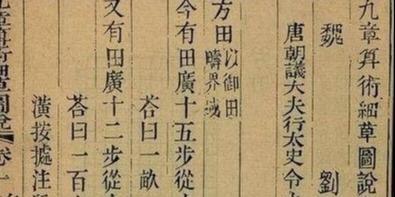 九章算術細草圖說
魏　劉
唐朝議大夫行太史令
方田以御田疇界域
今有田廣十五步從
荅曰一畝
又有田廣十二步從
荅曰一百
潢按據注